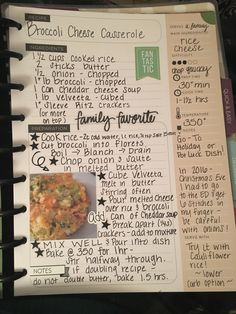 RECIPE
Broccoli Cheese Casserole
INGREDIENTS
1 1/2 cups cooked rice
2 sticks butter
1/2 onion - chopped
1 lb broccoli - chopped
1 can cheddar cheese soup
1 lb Velveeta - cubed
1 sleeve Ritz crackers
(or more on top!)
family favorite
FAN
TAS
TIC
PREPARATION
Cook rice
Cut broccoli into florets
Boil → Blanch → Drain
Chop onion & saute
in melted butter
Cube Velveeta
melt in butter
stirring often
Pour melted cheese
over rice & broccoli
Add
can of cheddar soup
Break apart (4x)
crackers - add to mixture
MIX WELL & Pour into dish
Bake @ 350 for 1hr -
stir halfway through.
NOTES
if doubling recipe -
do not double butter, bake 1.5 hrs.
SERVES
a family
MAIN INGREDIENTS
rice
cheese
DIFFICULTY
PREP TIME
30 min
COOK TIME
1-1 1/2 hrs
TEMPERATURE
350°
NOTES
Go-To
Holiday or
Pot Luck Dish!
In 2016 -
Christmas Eve
I had to go to
the ED & get
6 stitches in
my finger -
be careful
with onions!
SERVE WITH
Try it with
Cauliflower
rice!
~ lower
carb option ~
QUICK & EASY